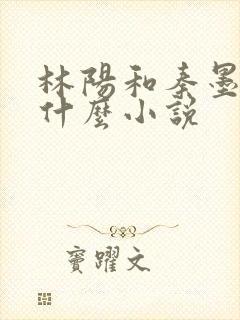 林陽和秦墨
什麼小説
竇躍文